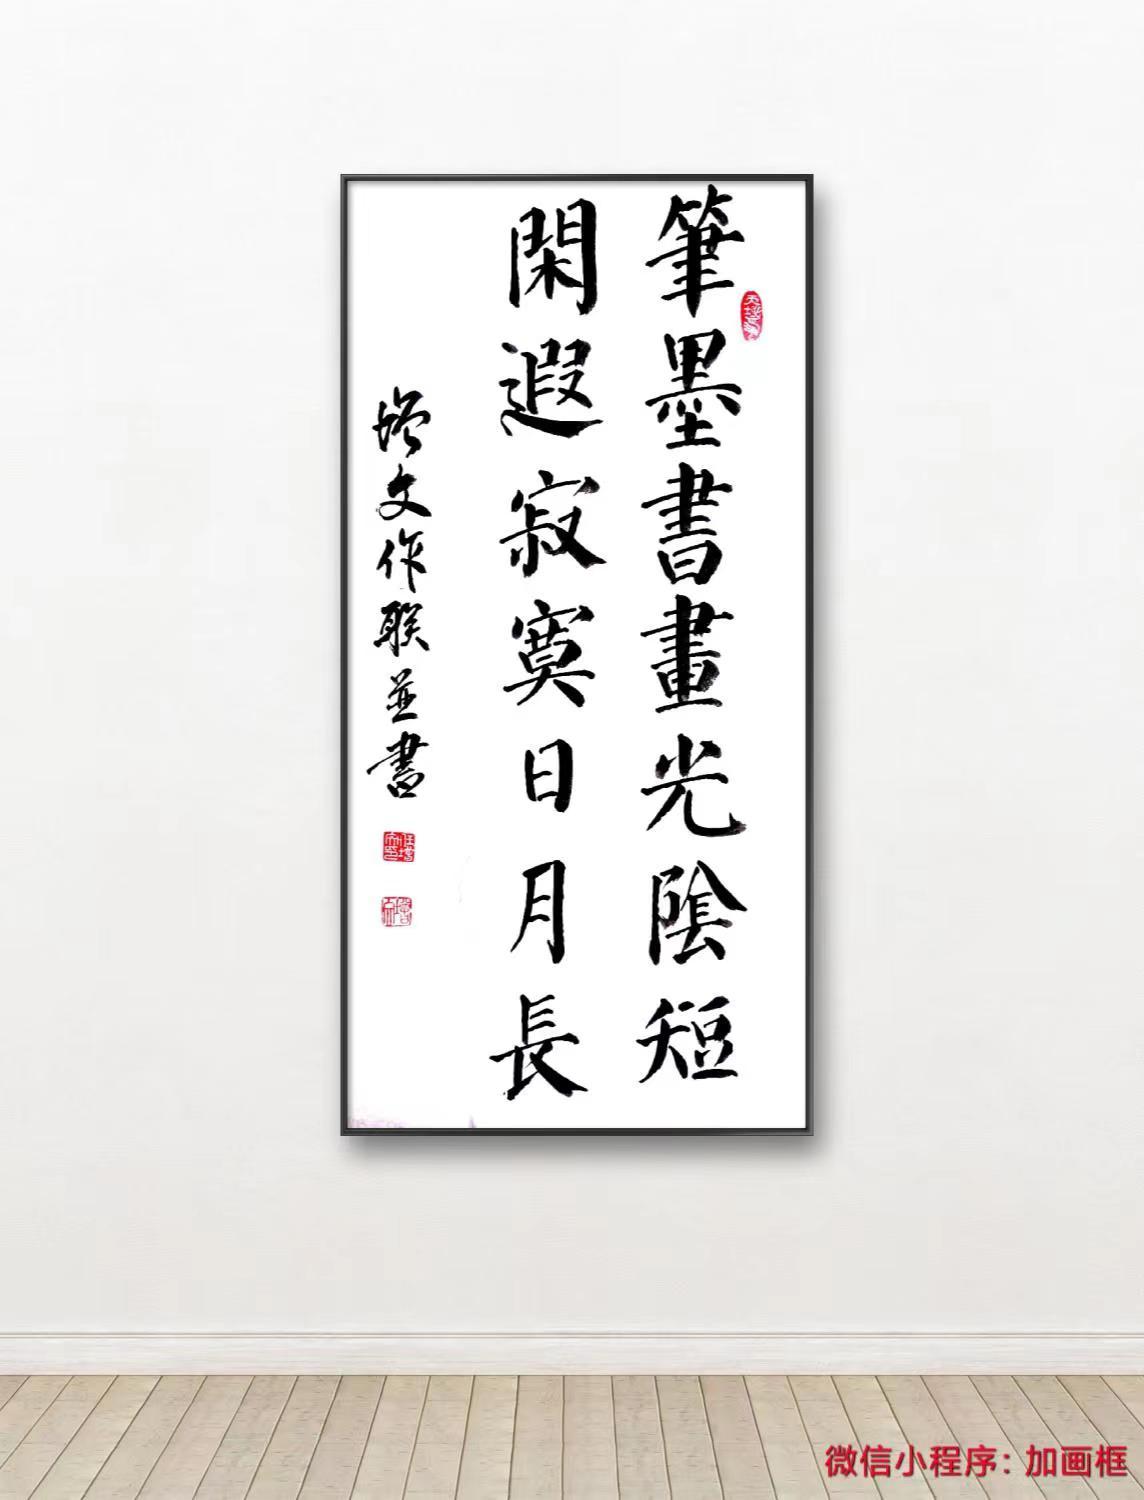 筆墨書畫光陰短
閑遐寂寞日月長
增文作联並書
微信小程序：加画框